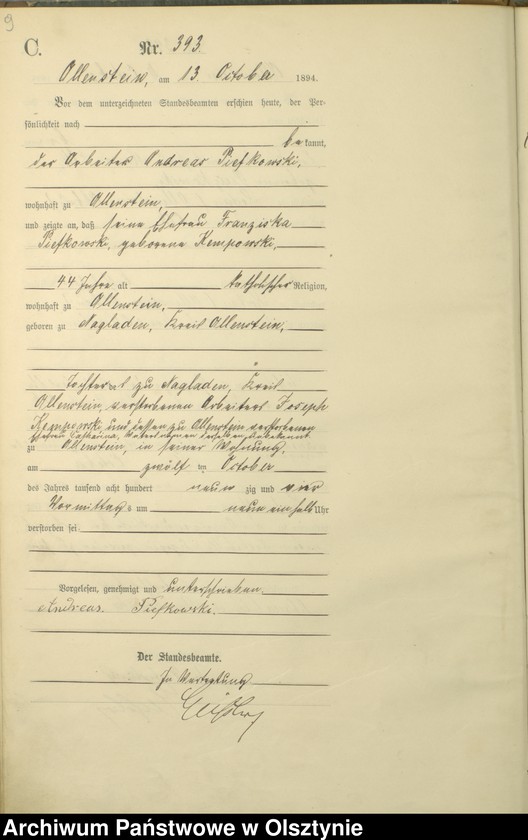 9
C.
Nr. 393.
Allenstein, am 13. October 1894.
Vor dem unterzeichneten Standesbeamten erschien heute, der Per-
sönlichkeit nach
bekannt,
der Arbeiter Andreas Piefkowski,
wohnhaft zu Allenstein,
und zeigte an, daß seine Ehefrau Franziska
Piefkowski, geborene Kempowski,
44 Jahre alt katholischer Religion,
wohnhaft zu Allenstein,
geboren zu Nagladen, Kreis Allenstein,
Tochter des zu Nagladen, Kreis
Allenstein verstorbenen Arbeiters Joseph
Kempowski, und dessen zu Allenstein verstorbenen
Ehefrau Catharina, Vatersnamen derselben unbekannt
zu Allenstein, in seiner Wohnung,
am zwölften October
des Jahres tausend acht hundert neunzig und vier
Vormittags um neun ein halb Uhr
verstorben sei.
Vorgelesen, genehmigt und unterschrieben
Andreas Piefkowski.
Der Standesbeamte.
In Vertretung
Archiwum Państwowe w Olsztynie